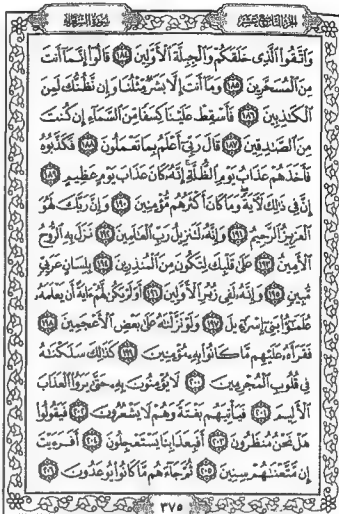 الجزء التاسع عشر سورة الشعراء
وَاتَّقُوا الَّذِي خَلَقَكُمْ وَالْجِبِلَّةَ الْأَوَّلِينَ ١٨٤ قَالُوا إِنَّمَا أَنتَ
مِنَ الْمُسَحَّرِينَ ١٨٥ وَمَا أَنتَ إِلَّا بَشَرٌ مِّثْلُنَا وَإِن نَّظُنُّكَ لَمِنَ
الْكَاذِبِينَ ١٨٦ فَأَسْقِطْ عَلَيْنَا كِسَفًا مِّنَ السَّمَاءِ إِن كُنتَ
مِنَ الصَّادِقِينَ ١٨٧ قَالَ رَبِّي أَعْلَمُ بِمَا تَعْمَلُونَ ١٨٨ فَكَذَّبُوهُ
فَأَخَذَهُمْ عَذَابُ يَوْمِ الظُّلَّةِ إِنَّهُ كَانَ عَذَابَ يَوْمٍ عَظِيمٍ ١٨٩
إِنَّ فِي ذَٰلِكَ لَآيَةً وَمَا كَانَ أَكْثَرُهُم مُّؤْمِنِينَ ١٩٠ وَإِنَّ رَبَّكَ لَهُوَ
الْعَزِيزُ الرَّحِيمُ ١٩١ وَإِنَّهُ لَتَنزِيلُ رَبِّ الْعَالَمِينَ ١٩٢ نَزَلَ بِهِ الرُّوحُ
الْأَمِينُ ١٩٣ عَلَىٰ قَلْبِكَ لِتَكُونَ مِنَ الْمُنذِرِينَ ١٩٤ بِلِسَانٍ عَرَبِيٍّ
مُّبِينٍ ١٩٥ وَإِنَّهُ لَفِي زُبُرِ الْأَوَّلِينَ ١٩٦ أَوَلَمْ يَكُن لَّهُمْ آيَةً أَن يَعْلَمَهُ
عُلَمَاءُ بَنِي إِسْرَائِيلَ ١٩٧ وَلَوْ نَزَّلْنَاهُ عَلَىٰ بَعْضِ الْأَعْجَمِينَ ١٩٨
فَقَرَأَهُ عَلَيْهِم مَّا كَانُوا بِهِ مُؤْمِنِينَ ١٩٩ كَذَٰلِكَ سَلَكْنَاهُ
فِي قُلُوبِ الْمُجْرِمِينَ ٢٠٠ لَا يُؤْمِنُونَ بِهِ حَتَّىٰ يَرَوُا الْعَذَابَ
الْأَلِيمَ ٢٠١ فَيَأْتِيَهُم بَغْتَةً وَهُمْ لَا يَشْعُرُونَ ٢٠٢ فَيَقُولُوا
هَلْ نَحْنُ مُنظَرُونَ ٢٠٣ أَفَبِعَذَابِنَا يَسْتَعْجِلُونَ ٢٠٤ أَفَرَأَيْتَ
إِن مَّتَّعْنَاهُمْ سِنِينَ ٢٠٥ ثُمَّ جَاءَهُم مَّا كَانُوا يُوعَدُونَ ٢٠٦
٣٧٥